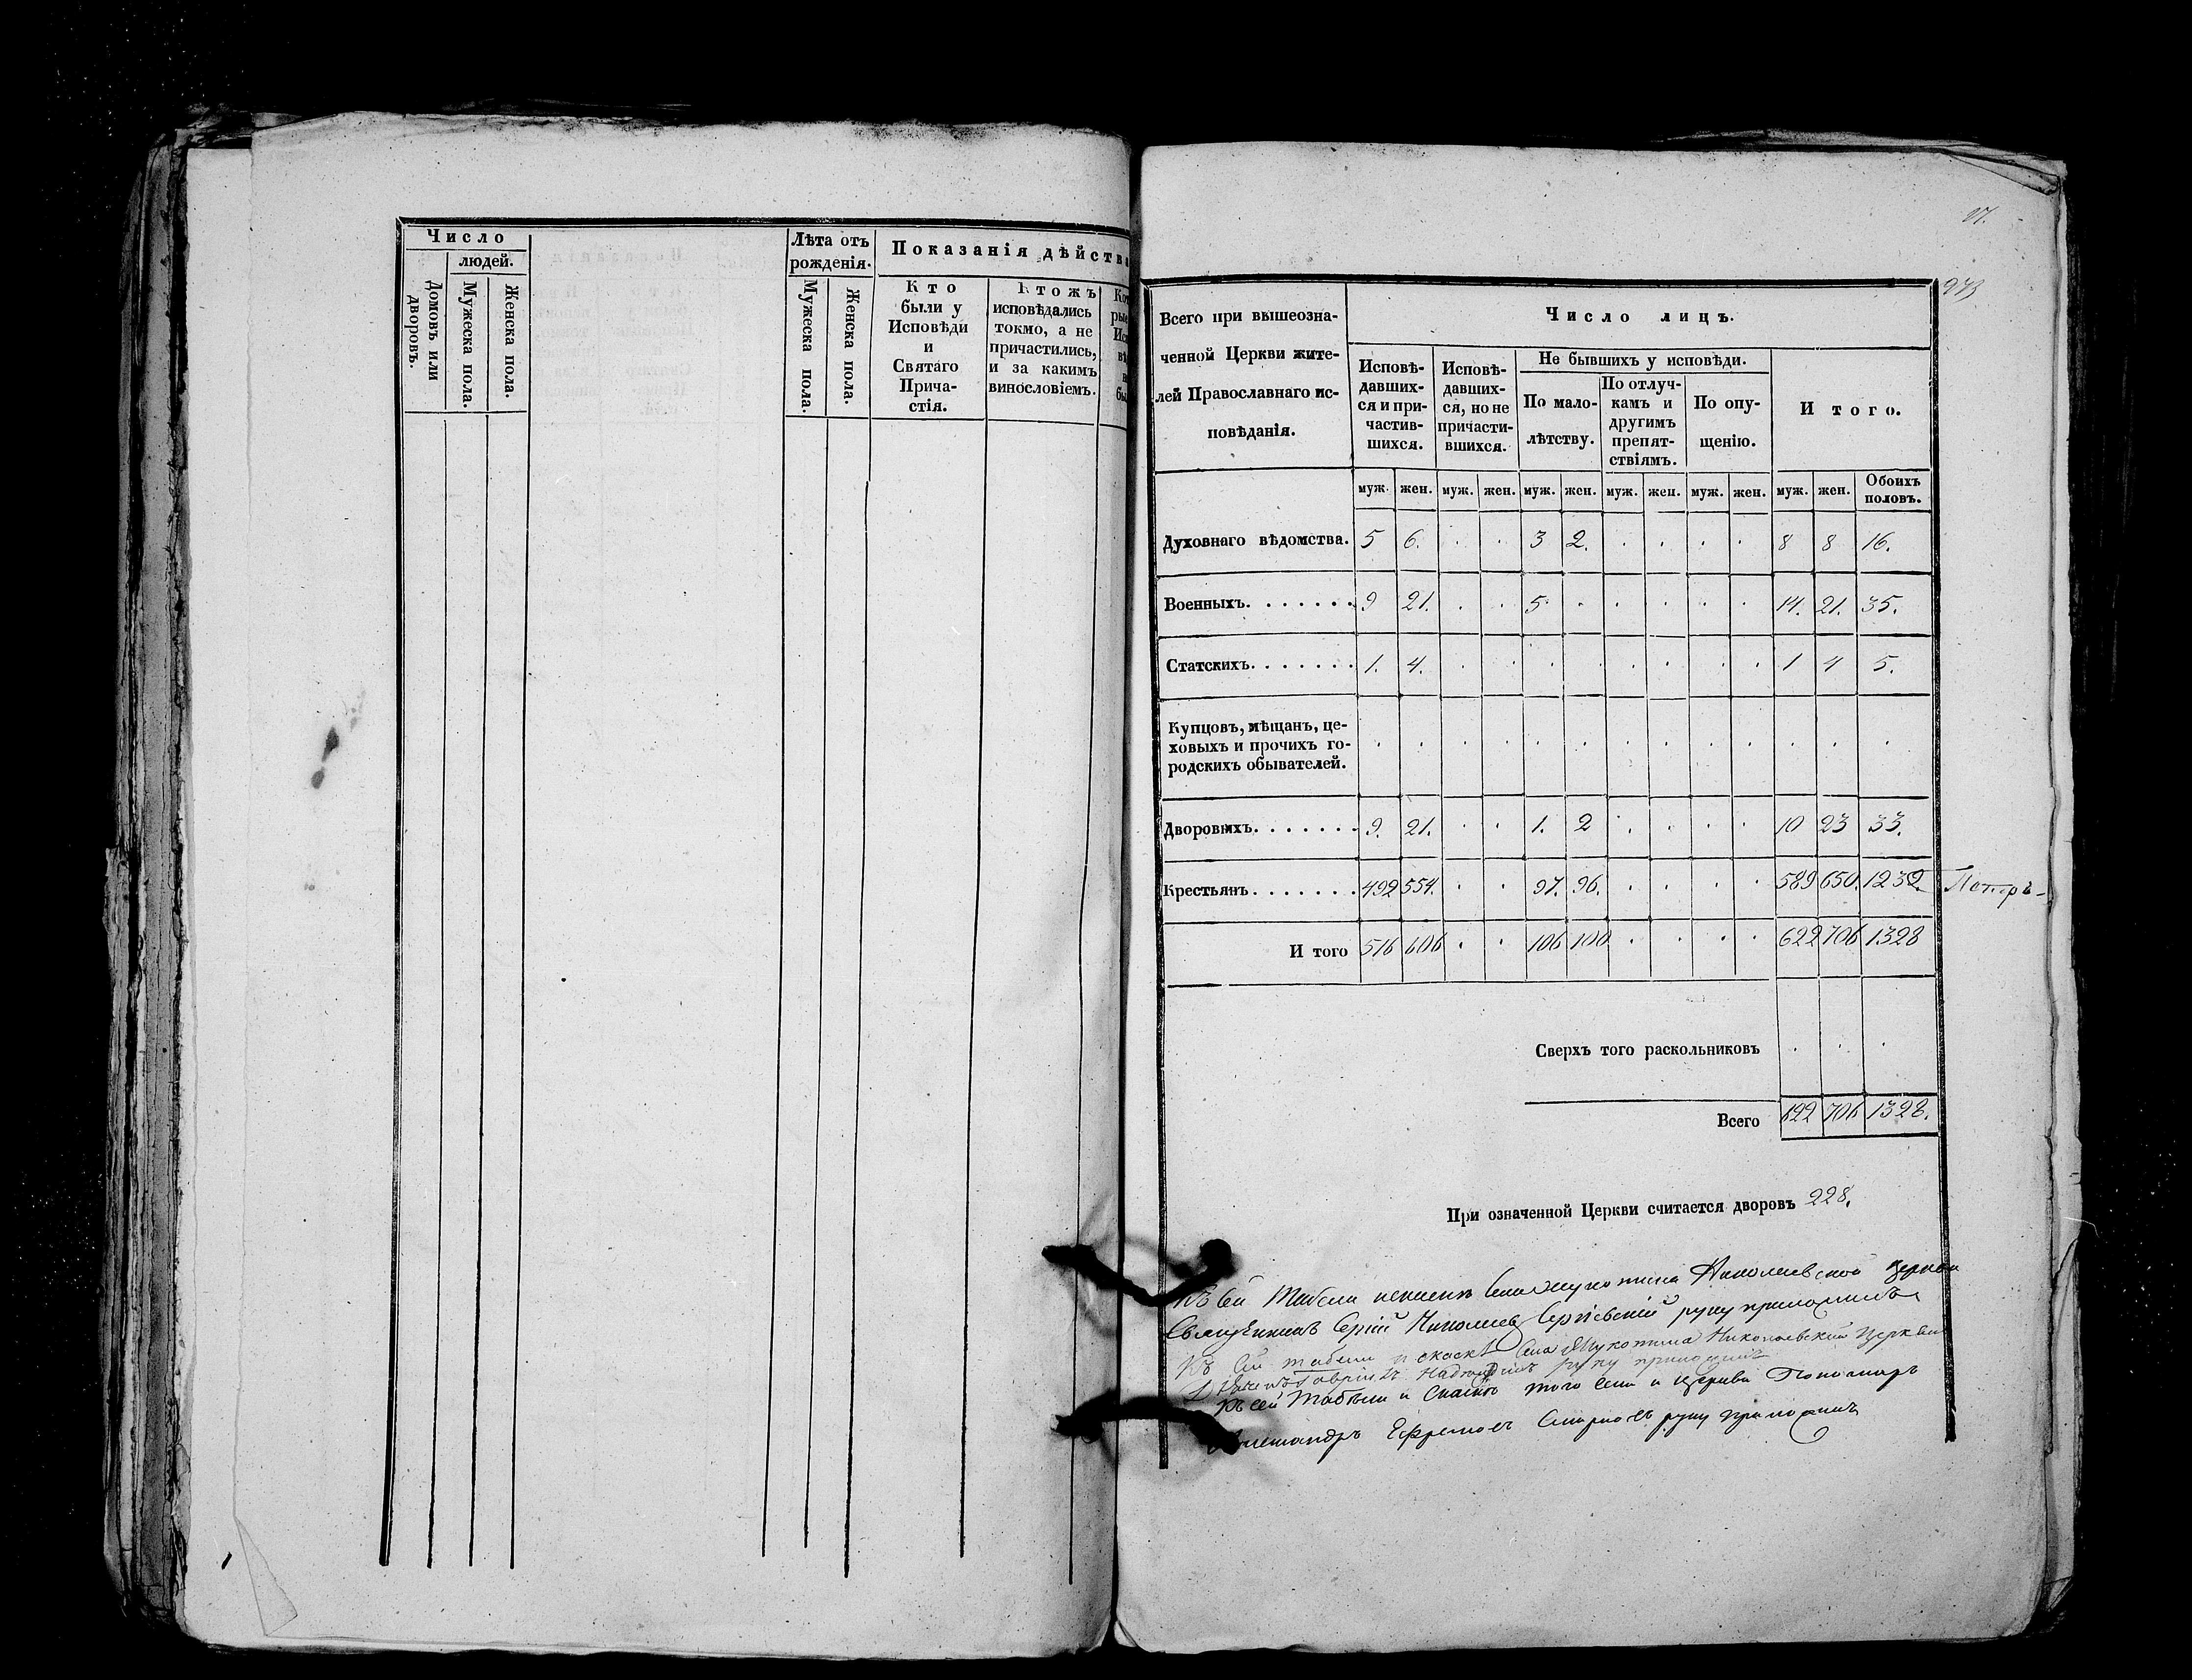 Число
людей.
Домовъ или дворовъ.
Мужеска пола.
Женска пола.
Лѣта отъ рожденія.
Мужеска пола.
Женска пола.
Показанія дѣйств
Кто
были у
Исповѣди
и
Святаго
Прича-
стія.
Ктожъ
исповѣдались
токмо, а не
причастились,
и за какимъ
винословіемъ.
27.
273
Всего при вышеозна-
ченной Церкви жите-
лей Православнаго ис-
повѣданія.
Число лицъ.
Исповѣ-
давших-
ся и при-
частив-
шихся.
Исповѣ-
давших-
ся, но не
причасти-
вшихся.
Не бывшихъ у исповѣди.
По мало-
лѣтству.
По отлуч-
камъ и
другимъ
препят-
ствіямъ.
По опу-
щенію.
Итого.
муж. жен. муж. жен. муж. жен. муж. жен. муж. жен. муж. жен. Обоихъ половъ.
Духовнаго вѣдомства. 5 6. . . 3 2. . . . . 8 8 16.
Военныхъ. . . . . . . 9 21. . . 5 . . . . . 14. 21. 35.
Статскихъ. . . . . . . 1. 4. . . . . . . . . 1 4 5.
Купцовъ, мѣщан, це-
ховыхъ и прочихъ го-
родскихъ обывателей. . . . . . . . . . . . . .
Дворовыхъ. . . . . . . 9. 21. . . 1. 2 . . . . 10 23 33.
Крестьянъ. . . . . . . 492 554. . . 97. 96. . . . . 589 650. 1239.
И того 516 606 . . 106 100 . . . . 622 706 1328
Сверхъ того раскольниковъ . . .
Всего 622 706 1328.
При означенной Церкви считается дворовъ 228.
Къ сей Табели Села Николаевской церкви
Священникъ Сергій Николаевъ Сергіевскій руку приложилъ
Къ сей табели и сказкѣ Села Николаевской Церкви
руку приложилъ
Къ сей Табели и Сказкѣ того Села и Церкви Пономарь
Александръ Ефремовъ Смирновъ руку приложилъ